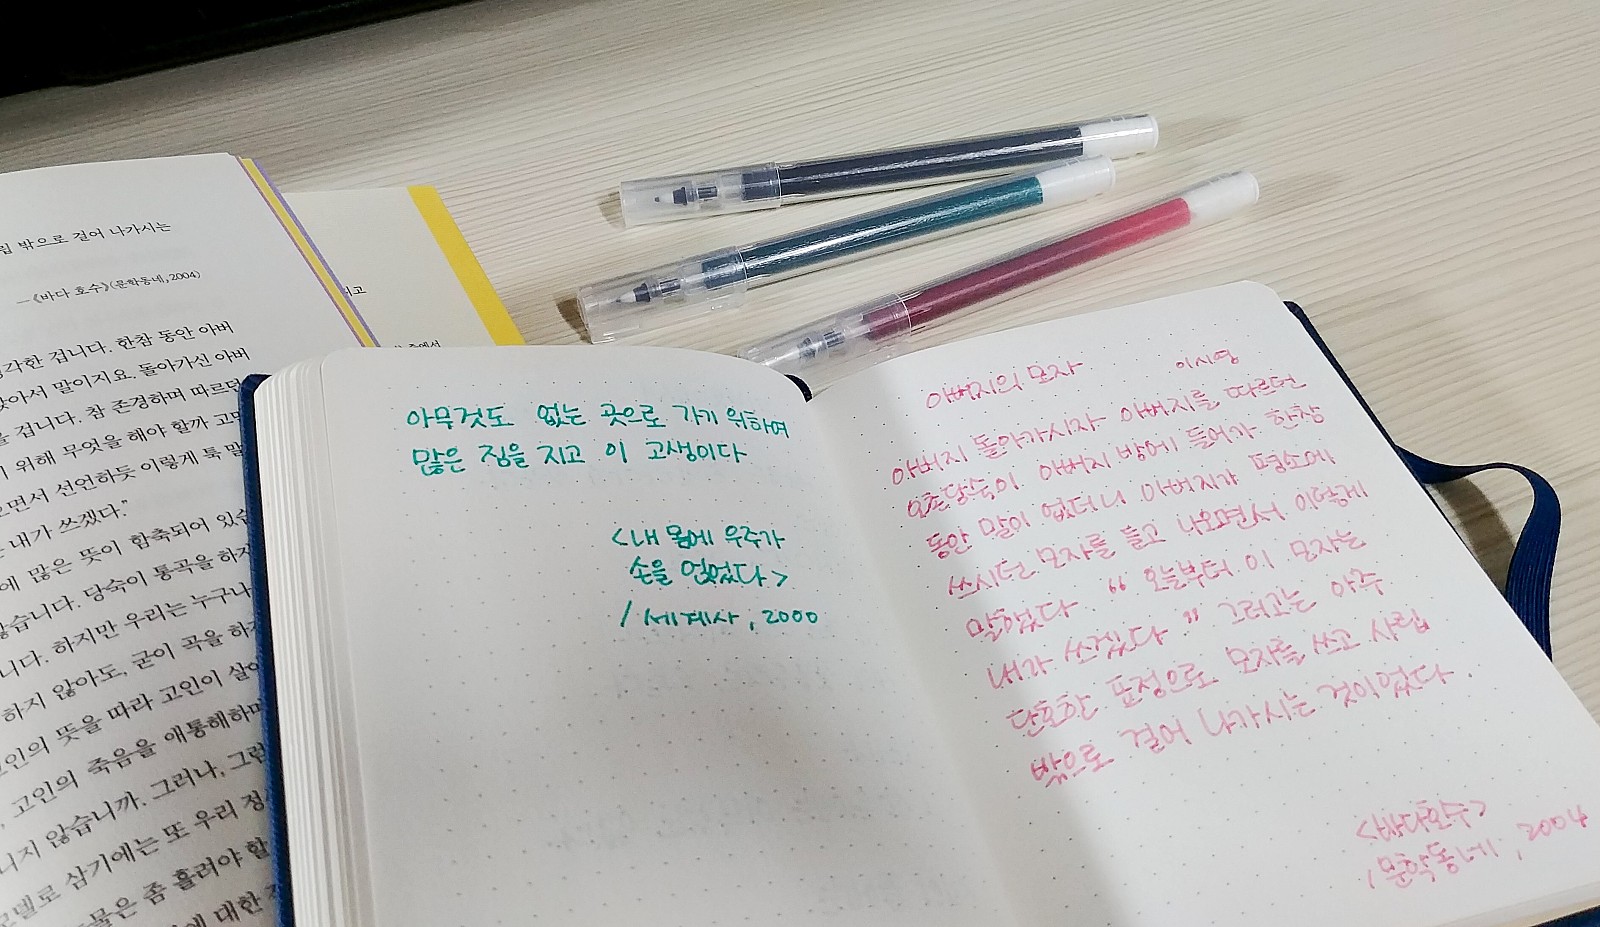 립 밖으로 걸어 나가시는
―《바다 호수》(문학동네, 2004)
각한 겁니다. 한참 동안 아버
아서 말이지요. 돌아가신 아버
겁니다. 참 존경하며 따르던
위해 무엇을 해야 할까 고민
으면서 선언하듯 이렇게 툭 말
내가 쓰겠다.”
에 많은 뜻이 함축되어 있습
않습니다. 당숙이 통곡을 하지
니다. 하지만 우리는 누구나
하지 않아도, 굳이 곡을 하지
인의 뜻을 따라 고인이 살아
, 고인의 죽음을 애통해하며
니지 않습니까. 그러나, 그런
모델로 삼기에는 또 우리 정
물은 좀 흘려야 할
에 대한
아무것도 없는 곳으로 가기 위하여
많은 짐을 지고 이 고생이다
<내 몸에 우주가
손을 얹었다>
/ 세계사, 2000
아버지의 모자 이시영
아버지 돌아가시자 아버지를 따르던
오촌당숙이 아버지 방에 들어가 한참
동안 말이 없더니 아버지가 평소에
쓰시던 모자를 들고 나오면서 이렇게
말했었다. “오늘부터 이 모자는
내가 쓰겠다” 그러고는 아주
단호한 표정으로 모자를 쓰고 사립
밖으로 걸어 나가시는 것이었다.
<바다호수>
/문학동네, 2004